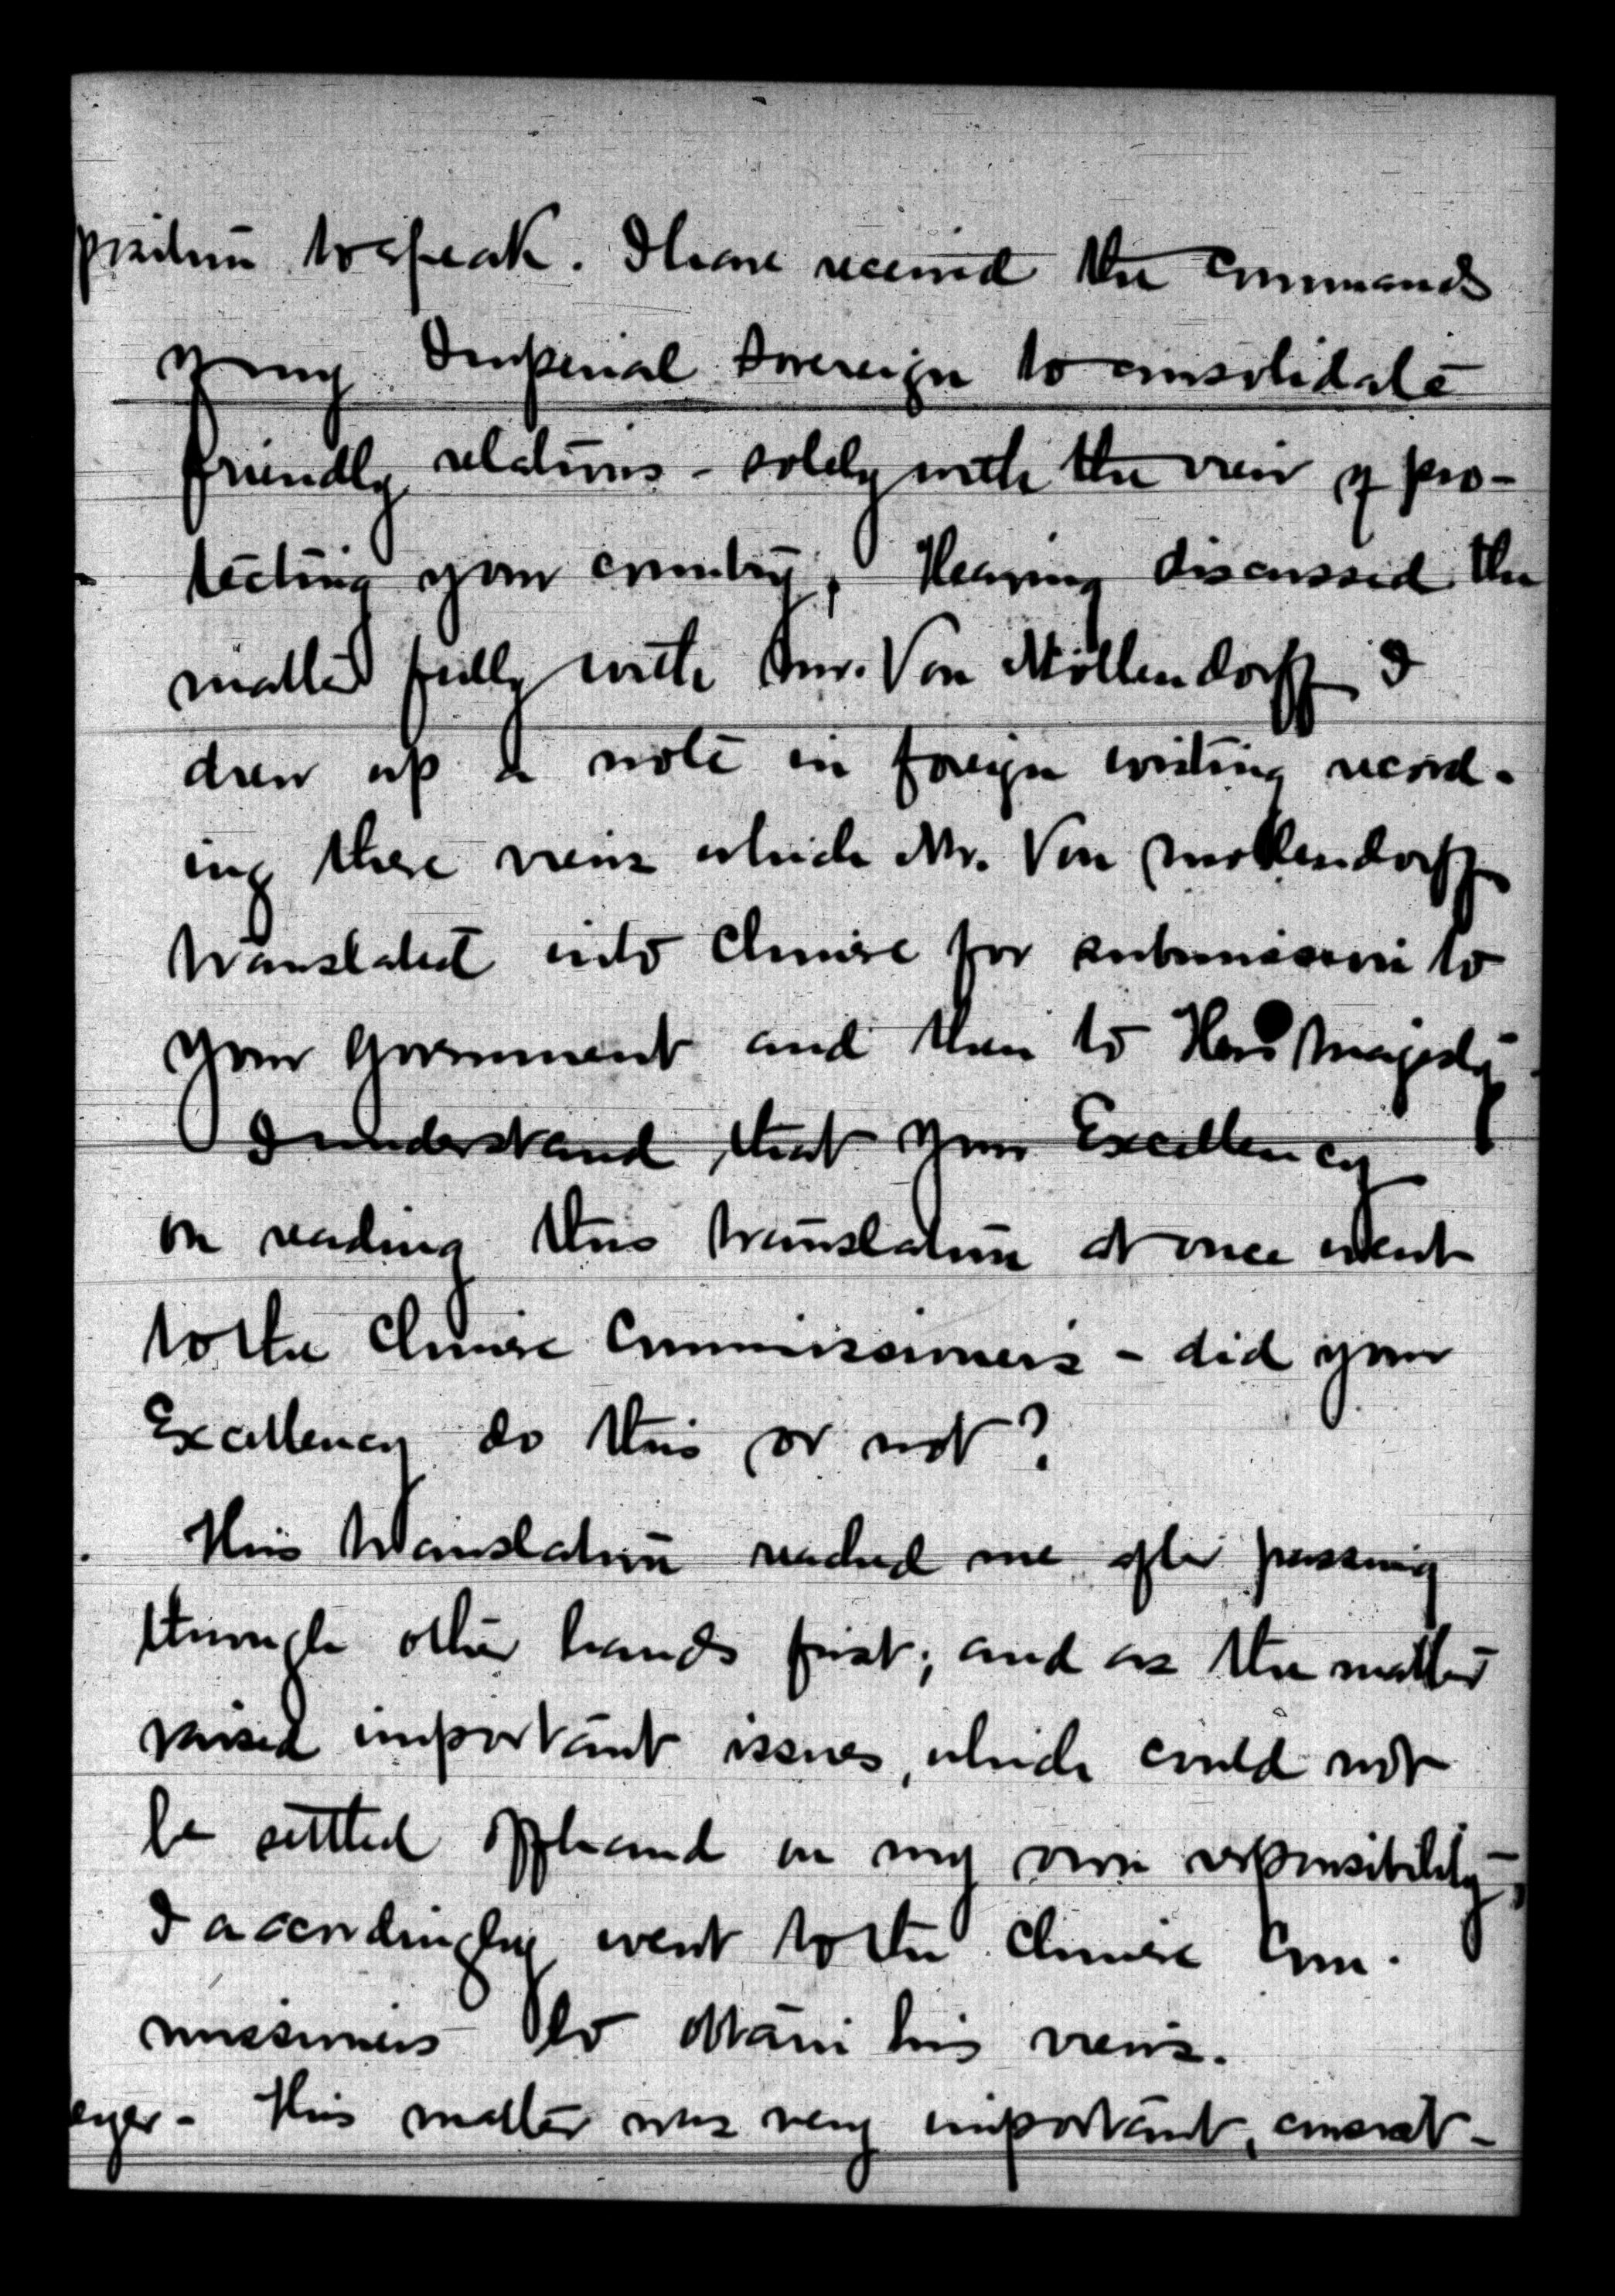 position to speak. I have received the commands
of my Imperial Sovereign to consolidate
friendly relations - solely with the view of pro-
tecting your country; Having discussed the
matter fully with Mr. Von Möllendorff I
drew up a note in foreign writing record-
ing these views which Mr. Von Mollendorff
translated into Chinese for submission to
your Government and then to His Majesty.
I understand that your Excellency
on reading this translation at once went
to the Chinese Commissioners - did your
Excellency do this or not?
This translation reached me after passing
through other hands first; and as the matter
raised important issues, which could not
be settled offhand on my own responsibility,
I accordingly went to the Chinese Com-
missioners to obtain his views.
eyer - This matter was very important, concert-